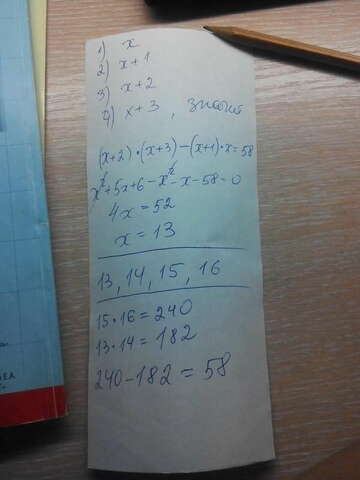 1) x
2) x+1
3) x+2
4) x+3, значит
(x+2)·(x+3)-(x+1)·x=58
x²+5x+6-x²-x-58=0
4x=52
x=13
13, 14, 15, 16
15·16=240
13·14=182
240-182=58